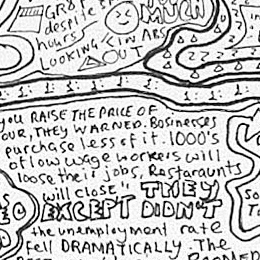 GR8
MUCH
despite
hours
LOOKING IN ARS
OUT
YOU RAISE THE PRICE OF
OUR, THEY WARNED. Businesses
purchase less of it. 1000's
of low wage workers will
loose their jobs, Restaraunts
will close" THEY
EXCEPT DIDN'T
the unemployment rate
fell DRAMATICALLY. The